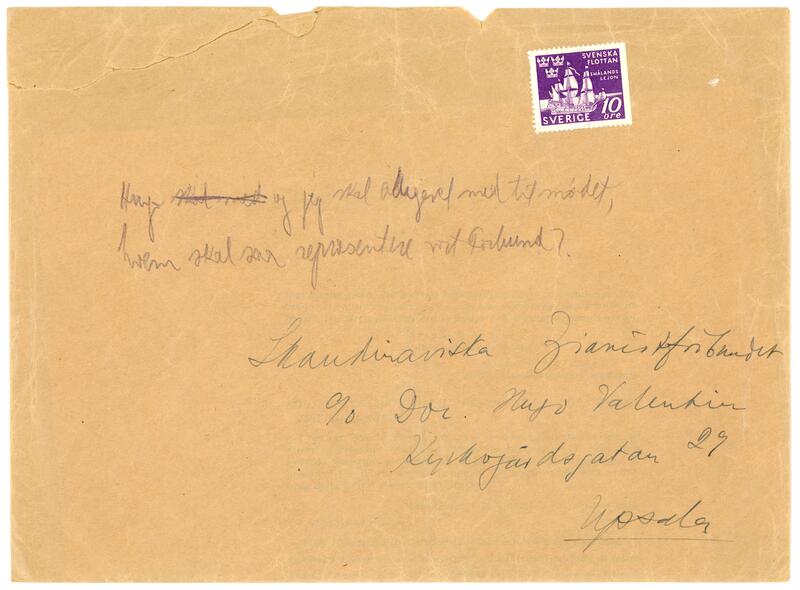 SVENSKA
FLOTTAN
SMÅLANDS
LEJON
10
SVERIGE öre
Hugo skal med og jeg skal alligevel med til mødet,
hvem skal saa repræsentere vort Forbund?
Skandinaviska Zionistförbundet
c/o Doc. Hugo Valentin
Kyrkogårdsgatan 29
Upsala